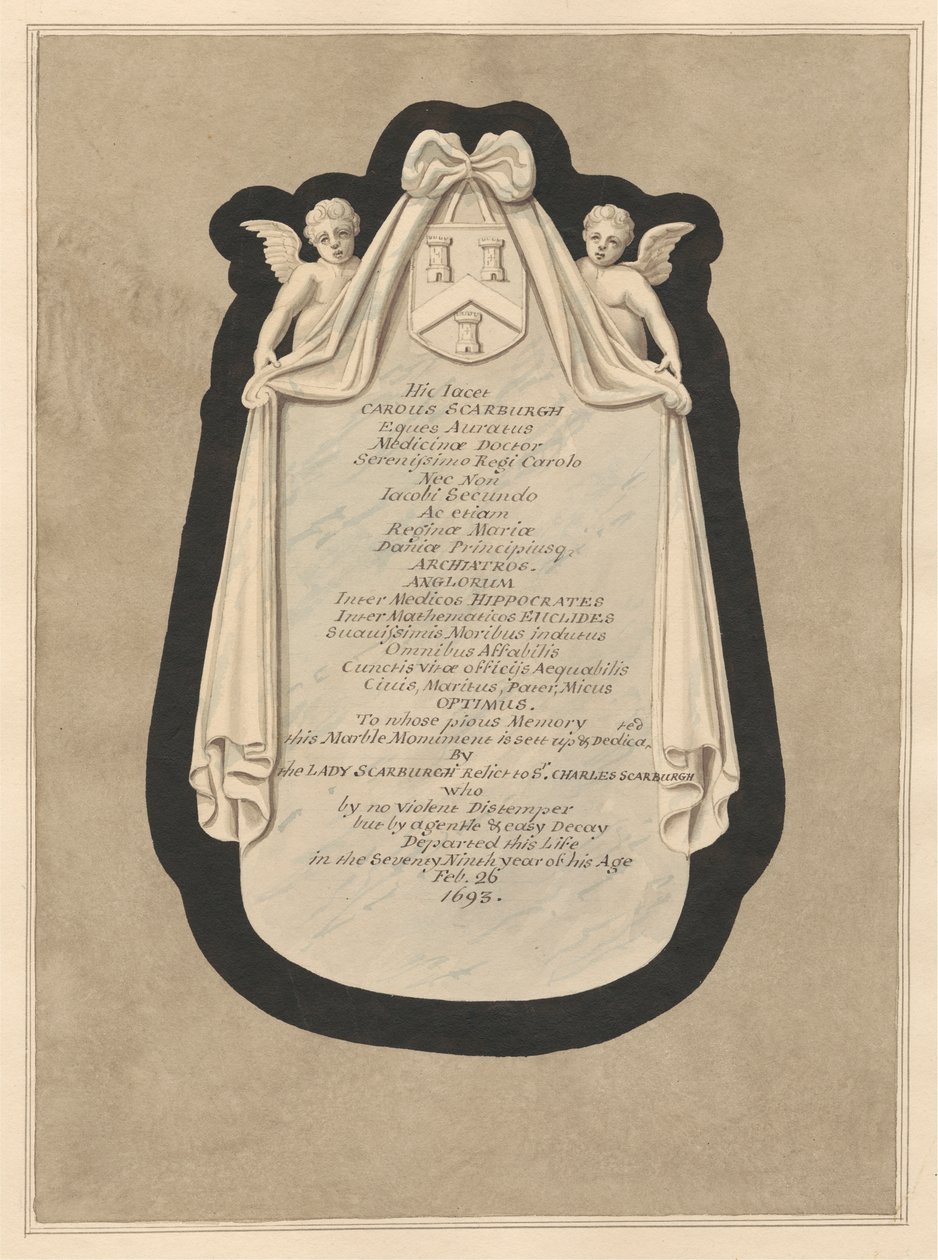 Hic Iacet
CAROUS SCARBURGH
Eques Auratus
Medicinœ Doctor
Sereniſsimo Regi Carolo
Nec Non
Iacobi Secundo
Ac etiam
Reginœ Mariœ
Daniœ Principiusq,
ARCHIATROS.
ANGLORUM
Inter Medicos HIPPOCRATES
Inter Mathematicos EUCLIDES
Suauiſsimis Moribus indutus
Omnibus Affabilis
Cunctis vitœ officijs Aequabilis
Ciuis, Maritus, Pater, Micus
OPTIMUS.
To whose pious Memory
this Marble Monument is sett up & Dedicated
By
the LADY SCARBURGH Relict to Sr. CHARLES SCARBURGH
who
by no violent Distemper
but by a gentle & easy Decay
Departed this Life
in the Seventy Ninth year of his Age
Feb. 26
1693.